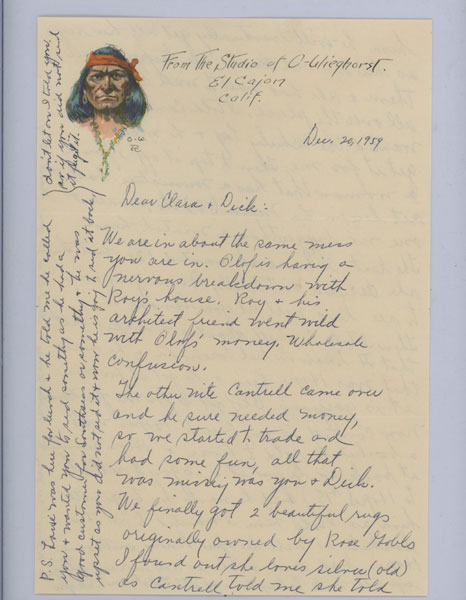 From The Studio of O-Wieghorst.
El Cajon
Calif.
O-W.
Dec. 20, 1959
Dear Clara & Dick:
We are in about the same mess
you are in. Olof is having a
nervous breakdown with
Roy's house. Roy & his
architect friend went wild
with Olof's money. Wholesale
confusion.
The other nite Cantrell came over
and he sure needed money,
so we started to trade and
had some fun, all that
was missing was you & Dick.
We finally got 2 beautiful rugs
originally owned by Rose
I found out she loves silver (old)
as Cantrell told me she told
P.S. was here for lunch & he told me he called
you & wanted you to send somethg as he had a
good customer for or something he was
upset as you did not send it & now he is going to send it back
don't let on I told you,
or if you did not send
it forget it.